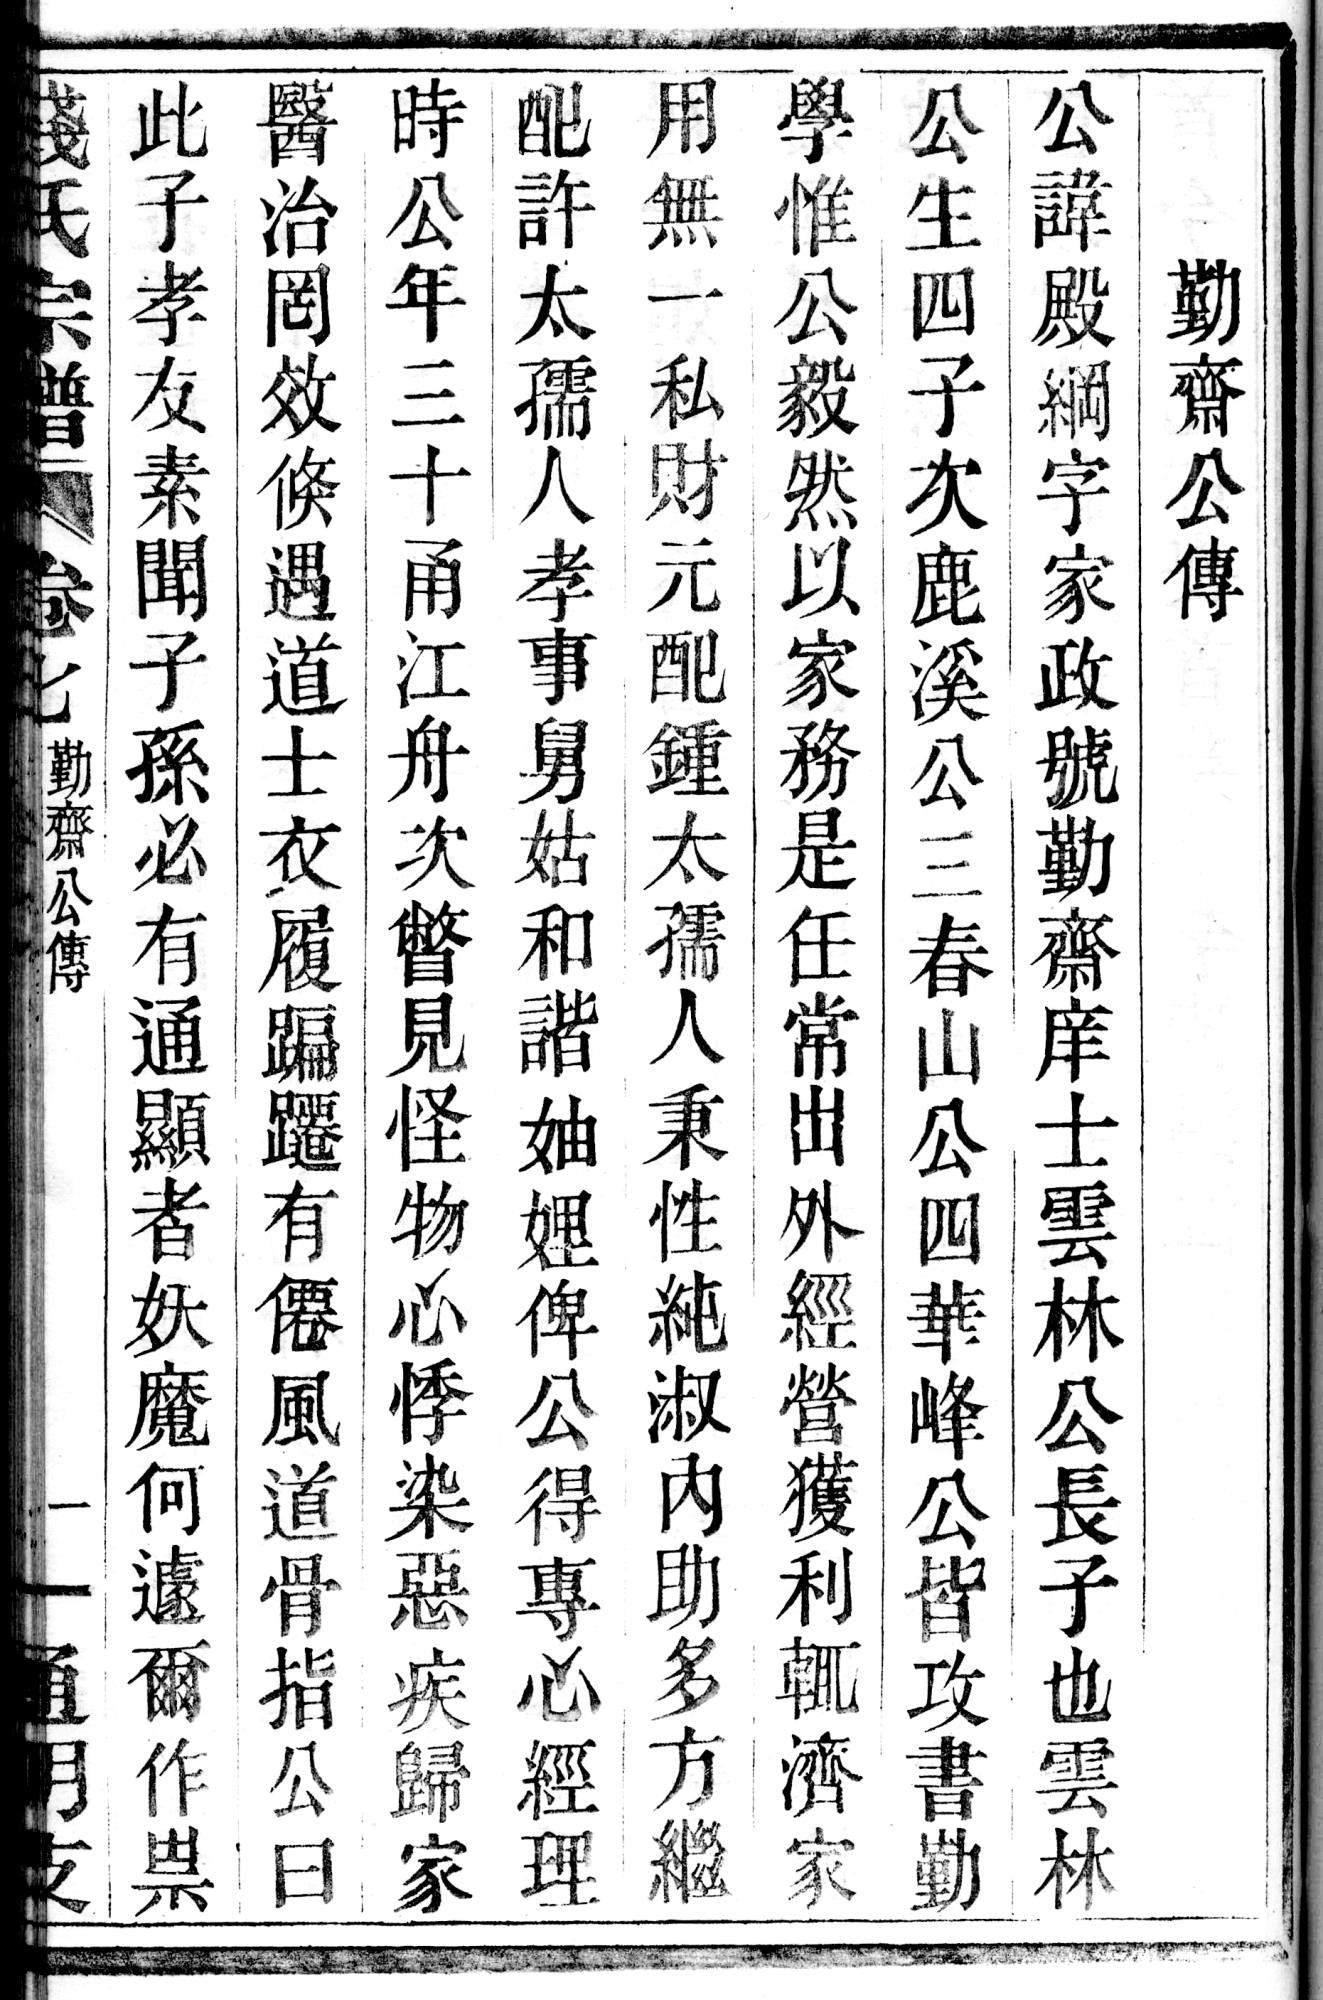 勤齋公傳
公諱殿綱字家政號勤齋庠士雲林公長子也雲林
公生四子次鹿溪公三春山公四華峰公皆攻書勤
學惟公毅然以家務是任常出外經營獲利輒濟家
用無一私財元配鍾太孺人秉性純淑内助多方繼
配許太孺人孝事舅姑和諧妯娌俾公得專心經理
時公年三十甬江舟次瞥見怪物心悸染惡疾歸家
醫治罔效倐遇道士衣履蹁躚有僊風道骨指公曰
此子孝友素聞子孫必有通顯者妖魔何遽爾作祟
錢氏宗譜 卷七 勤齋公傳 一 通明支